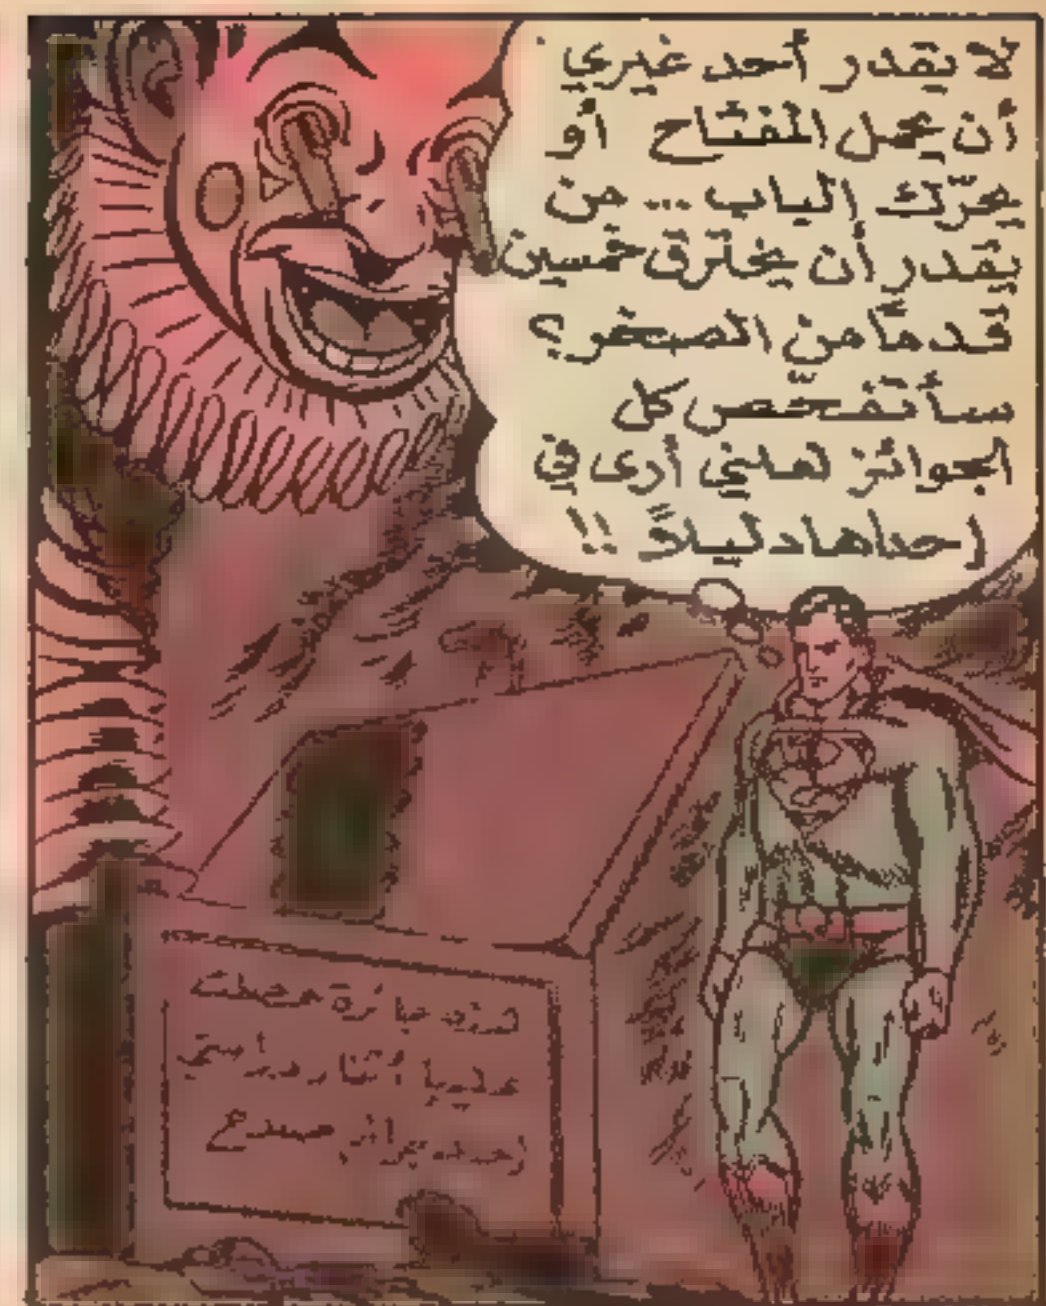 لا يقدر أحد غيري
أن يحمل المفتاح أو
يحرّك الباب ... من
يقدر أن يخترق خمسين
قدمًا من الصخر؟
سأتفحّص كل
الجوائز لعلني أرى في
إحداها دليلاً !!
هذه جائزة حصلت
عليها